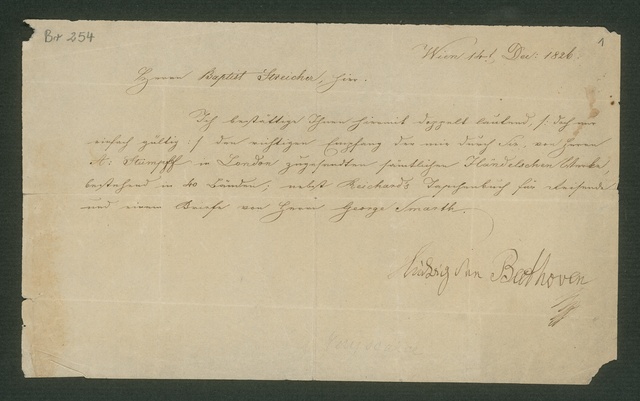 Br 254
1
Wien 14t. Dec: 1826.
Herrn Baptist Streicher, hier.
Ich bestättige Ihnen hiermit doppelt lautend, /: doch nur
einfach gültig :/ den richtigen Empfang der mir durch Sie, von Herrn
A: Stumpff in London zugesandten sämtlichen Händelschen Werke,
bestehend in 40 Bänden; nebst Reichards Taschenbuch für Reisende
und einem Briefe von Herrn George Smarth.
Ludwig van Beethoven